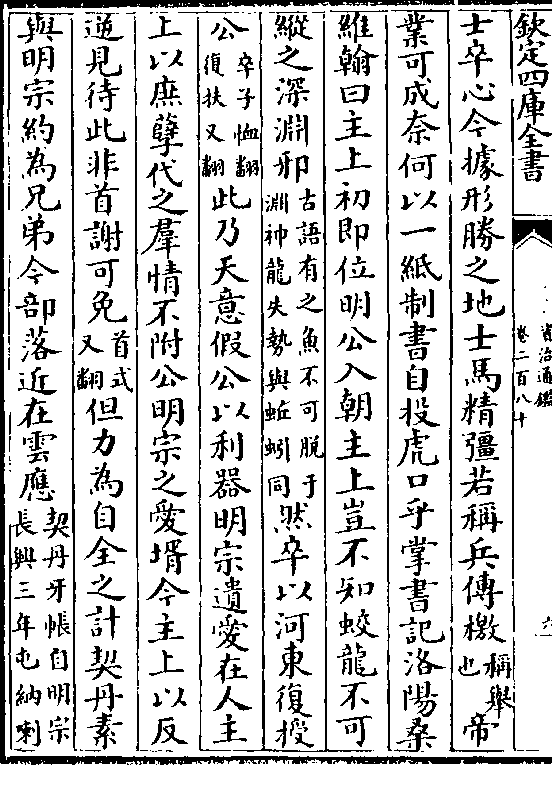 欽定四庫全書
資治通鑑
卷二百八十
士卒心今據形勝之地士馬精彊若稱兵傳檄稱舉也帝
業可成奈何以一紙制書自投虎口乎掌書記洛陽桑
維翰曰主上初即位明公入朝主上豈不知蛟龍不可
縱之深淵邪古語有之魚不可脫于淵神龍失勢與蚯蚓同然卒以河東復授
公卒子恤翻復扶又翻此乃天意假公以利器明宗遺愛在人主
上以庶孽代之羣情不附公明宗之愛壻今主上以反
逆見待此非首謝可免首式又翻但力為自全之計契丹素
與明宗約為兄弟今部落近在雲應契丹牙帳自明宗長興三年屯納喇